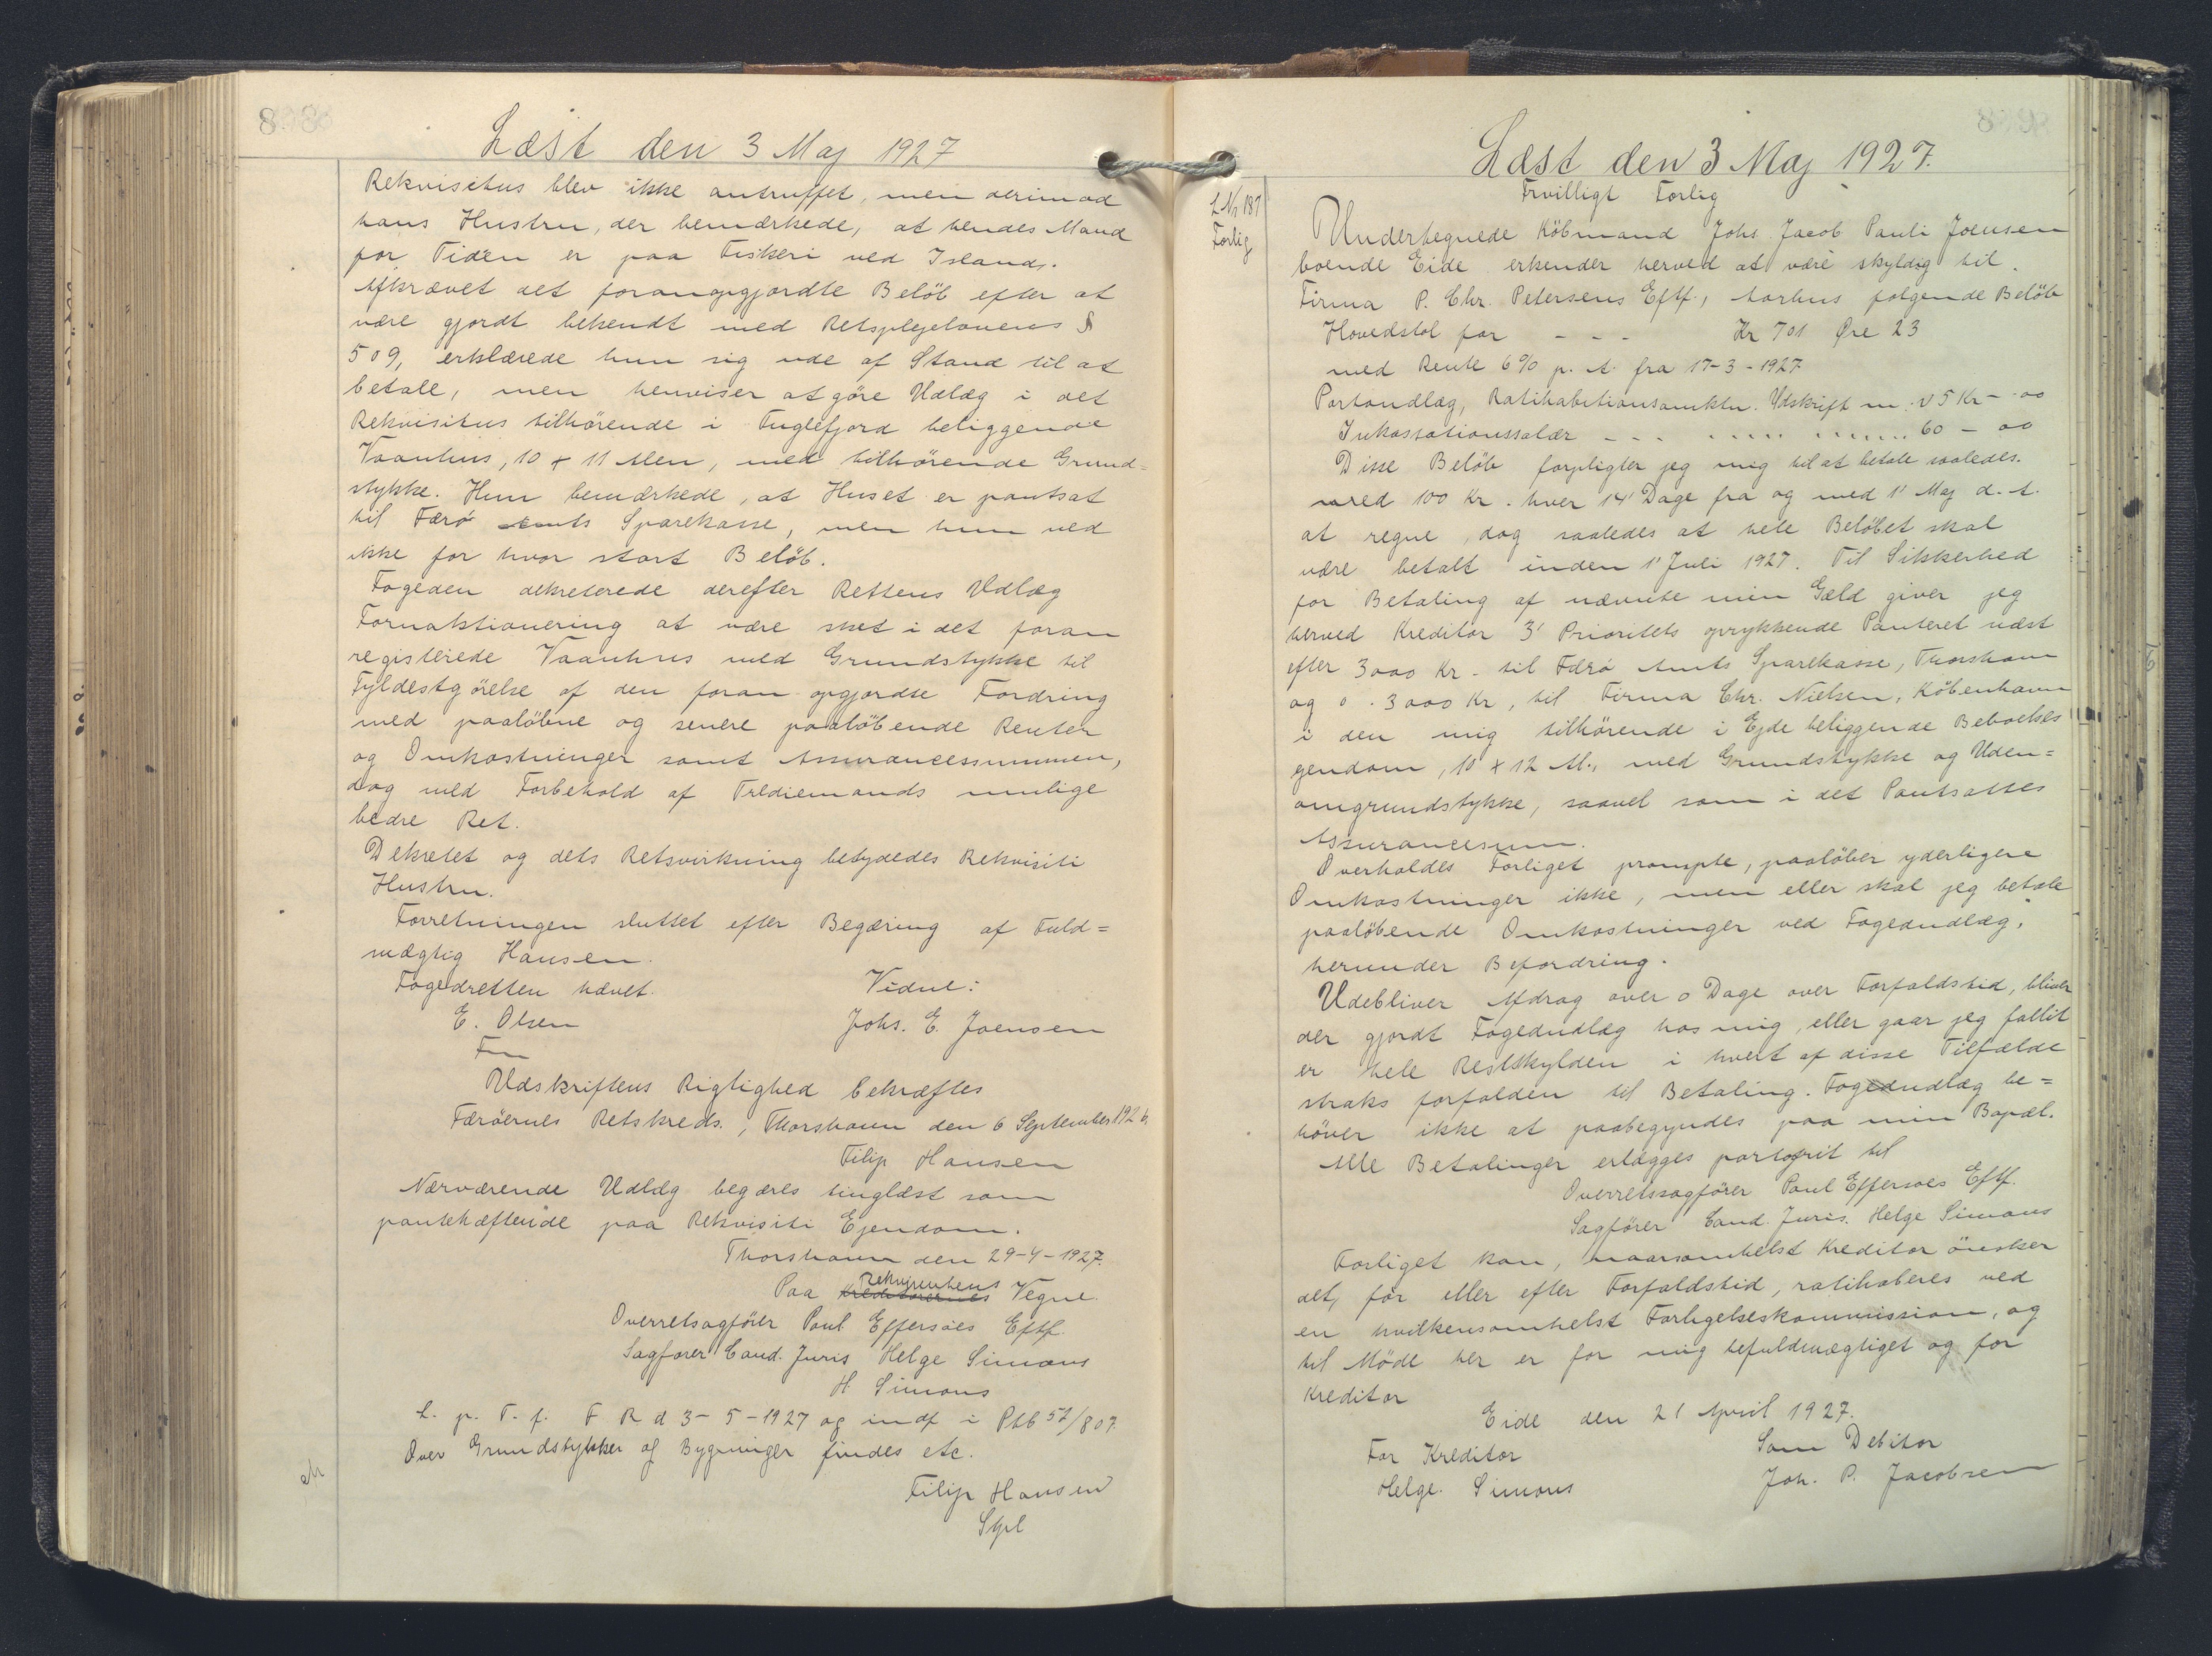 Læst den 3 Maj 1927
Rekvisitus blev ikke antruffet, men derimod
hans Hustru, der bemærkede, at hendes Mand
for Tiden er paa Fiskeri ved Island.
Afkrævet det foranopgjordte Beløb efter at
være gjordt bekendt med Retsplejelovens §
509, erklærede hun sig ude af Stand til at
betale, men henviser at göre Udlæg i det
Rekvisitus tilhörende i Fuglefjord beliggende
Vaanhus, 10 x 11 Alen, med tilhörende Grund=
stykke. Hun bemærkede, at Huset er pantsat
til Færø Amts Sparekasse, men hun ved
ikke for hvor stort Belöb.
Fogeden dekreterede derefter Rettens Udlæg
Fornaktionering at være sket i det foran
registerede Vaanhus med Grundstykke til
Fyldestgörelse af den foran opgjordte Fordring
med paalöbne og senere paalöbende Renter
og Omkostninger samt Assurancesummen,
dog med Forbehold af Trediemands mulige
bedre Ret.
Dekretet og dets Retsvirkning betydedes Rekvisiti
Hustru.
Forretningen sluttet efter Begæring af Fuld=
mægtig Hansen.
Fogedretten hævet.
Vidne:
E. Olsen
Johs. E. Joensen
Fm
Udskriftens Rigtighed bekræftes
Færöernes Retskreds, Thorshavn den 6 September 1926
Filip Hansen
Nærværende Udlæg begæres tinglæst som
pantehæftende paa Rekvisiti Ejendom.
Thorshavn den 29-4-1927.
Paa Kreditorernes Rekvirentens Vegne.
Overretsagförer Poul Effersöes Eftf.
Sagförer Cand. Juris Helge Simons
H Simons
L. p. T. f. F R d 3-5-1927 og indf i Ptb 52/807.
Over Grundstykker og Bygninger findes etc.
Filip Hansen
Læst den 3 Maj 1927.
Frivilligt Forlig
L Nr 187
Forlig
Undertegnede Köbmand Johs Jacob Pauli Joensen
boende Eide erkender herved at være skyldig til
Firma P. Chr. Petersens Eftf., Aarhus følgende Belöb
Hovedstol for - - - Kr 701 Øre 23
med Rente 6% p. A. fra 17-3-1927
Portoudlæg, Ratihabitionsomkstn. Udskrift m. v 5 Kr - 00
Inkassationssalær - - - ..... ...... 60 - 00
Disse Belöb forpligter jeg mig til at betale saaledes.
med 100 Kr. hver 14' Dage fra og med 1' Maj d. A.
at regne, dog saaledes at hele Belöbet skal
være betalt inden 1' Juli 1927. Til Sikkerhed
for Betaling af nævnte min Gæld giver jeg
herved Kreditor 3' Prioritets oprykkende Panteret næst
efter 3000 Kr. til Færö Amts Sparekasse, Thorshavn
og o. 3000 Kr, til Firma Chr. Nielsen, Köbenhavn
i den mig tilhörende i Ejde beliggende Beboelses
gendom, 10 x 12 Al., med Grundstykke og Uden=
omgrundstykke, saavel som i det Pantsattes
Assurancesum.
Overholdes Forliget prompte, paalöber yderligere
Omkostninger ikke, men eller skal jeg betale
paalöbende Omkostninger ved Fogedudlæg,
herunder Befordring.
Udebliver Afdrag over o Dage over Forfaldstid, bliver
der gjordt Fogedudlæg hos mig, eller gaar jeg fallit
er hele Restskylden i hvert af disse Tilfælde
straks forfalden til Betaling. Fogedudlæg be=
höver ikke at paabegyndes paa min Bopæl.
Alle Betalinger erlægges portofrit til
Overretssagförer Poul Effersöes Eftf.
Sagförer Cand. Juris. Helge Simons
Forliget kan, naarsomhelst Kreditor önsker
det, för eller efter Forfaldstid, ratihaberes ved
en hvilkensomhelst Forligelseskommission, og
til Möde her er for mig befuldmægtiget og for
Kreditor
Eide den 21 April 1927.
For Kreditor
Som Debitor
Helge Simons
Joh. P. Jacobsen